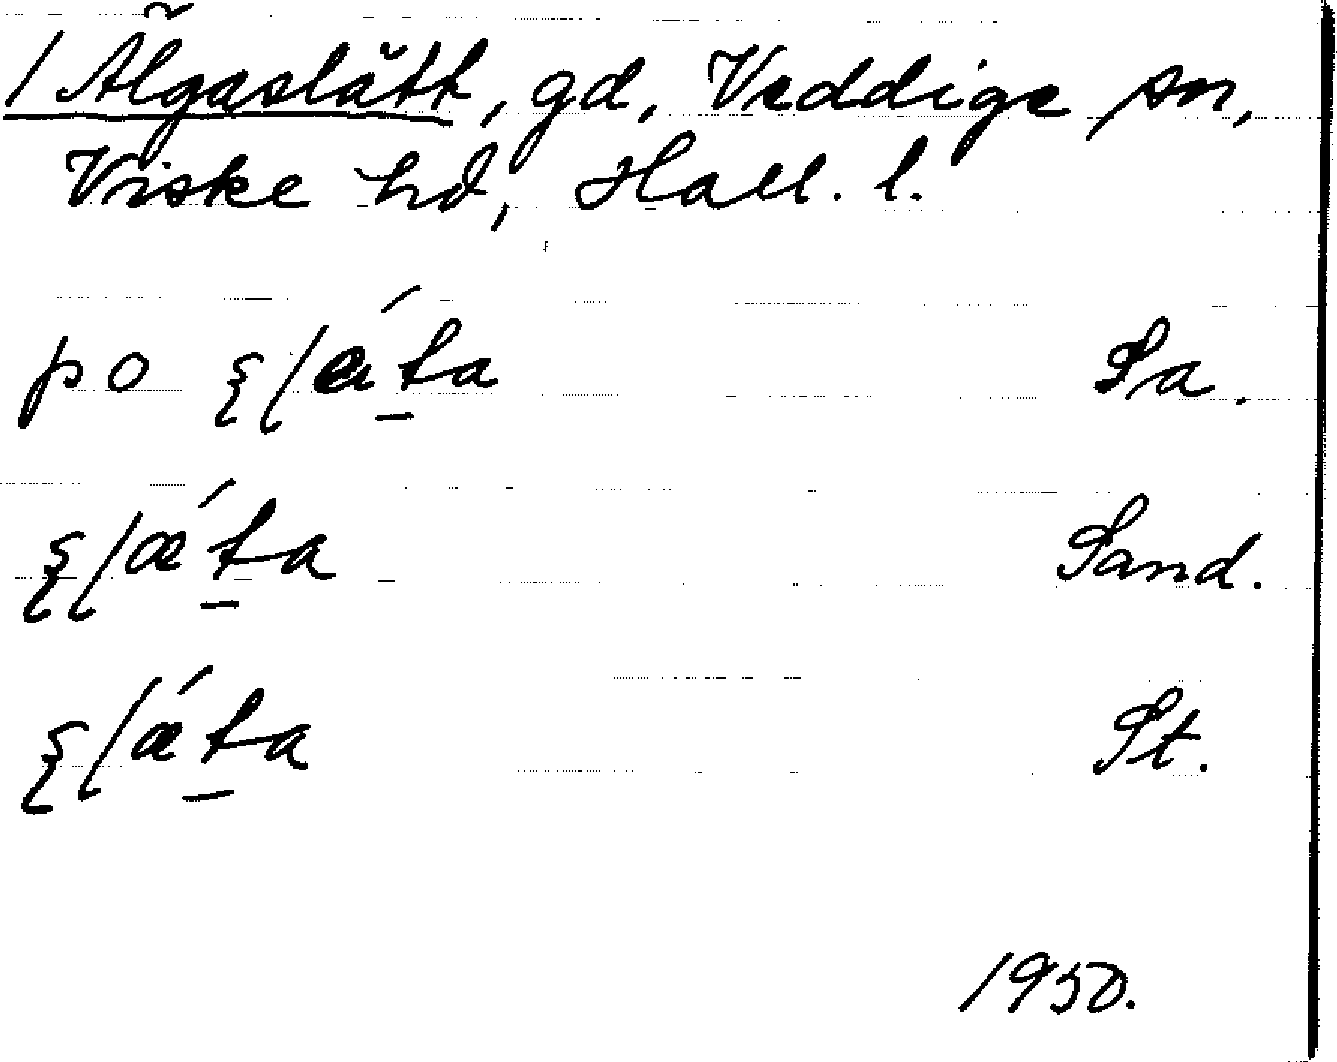 / Älgaslätt, gd, Veddige sn,
Viske hd, Hall. l.
po ʂlǽta Sa.
ʂlǽta Sand.
ʂlǽta St.
1950.